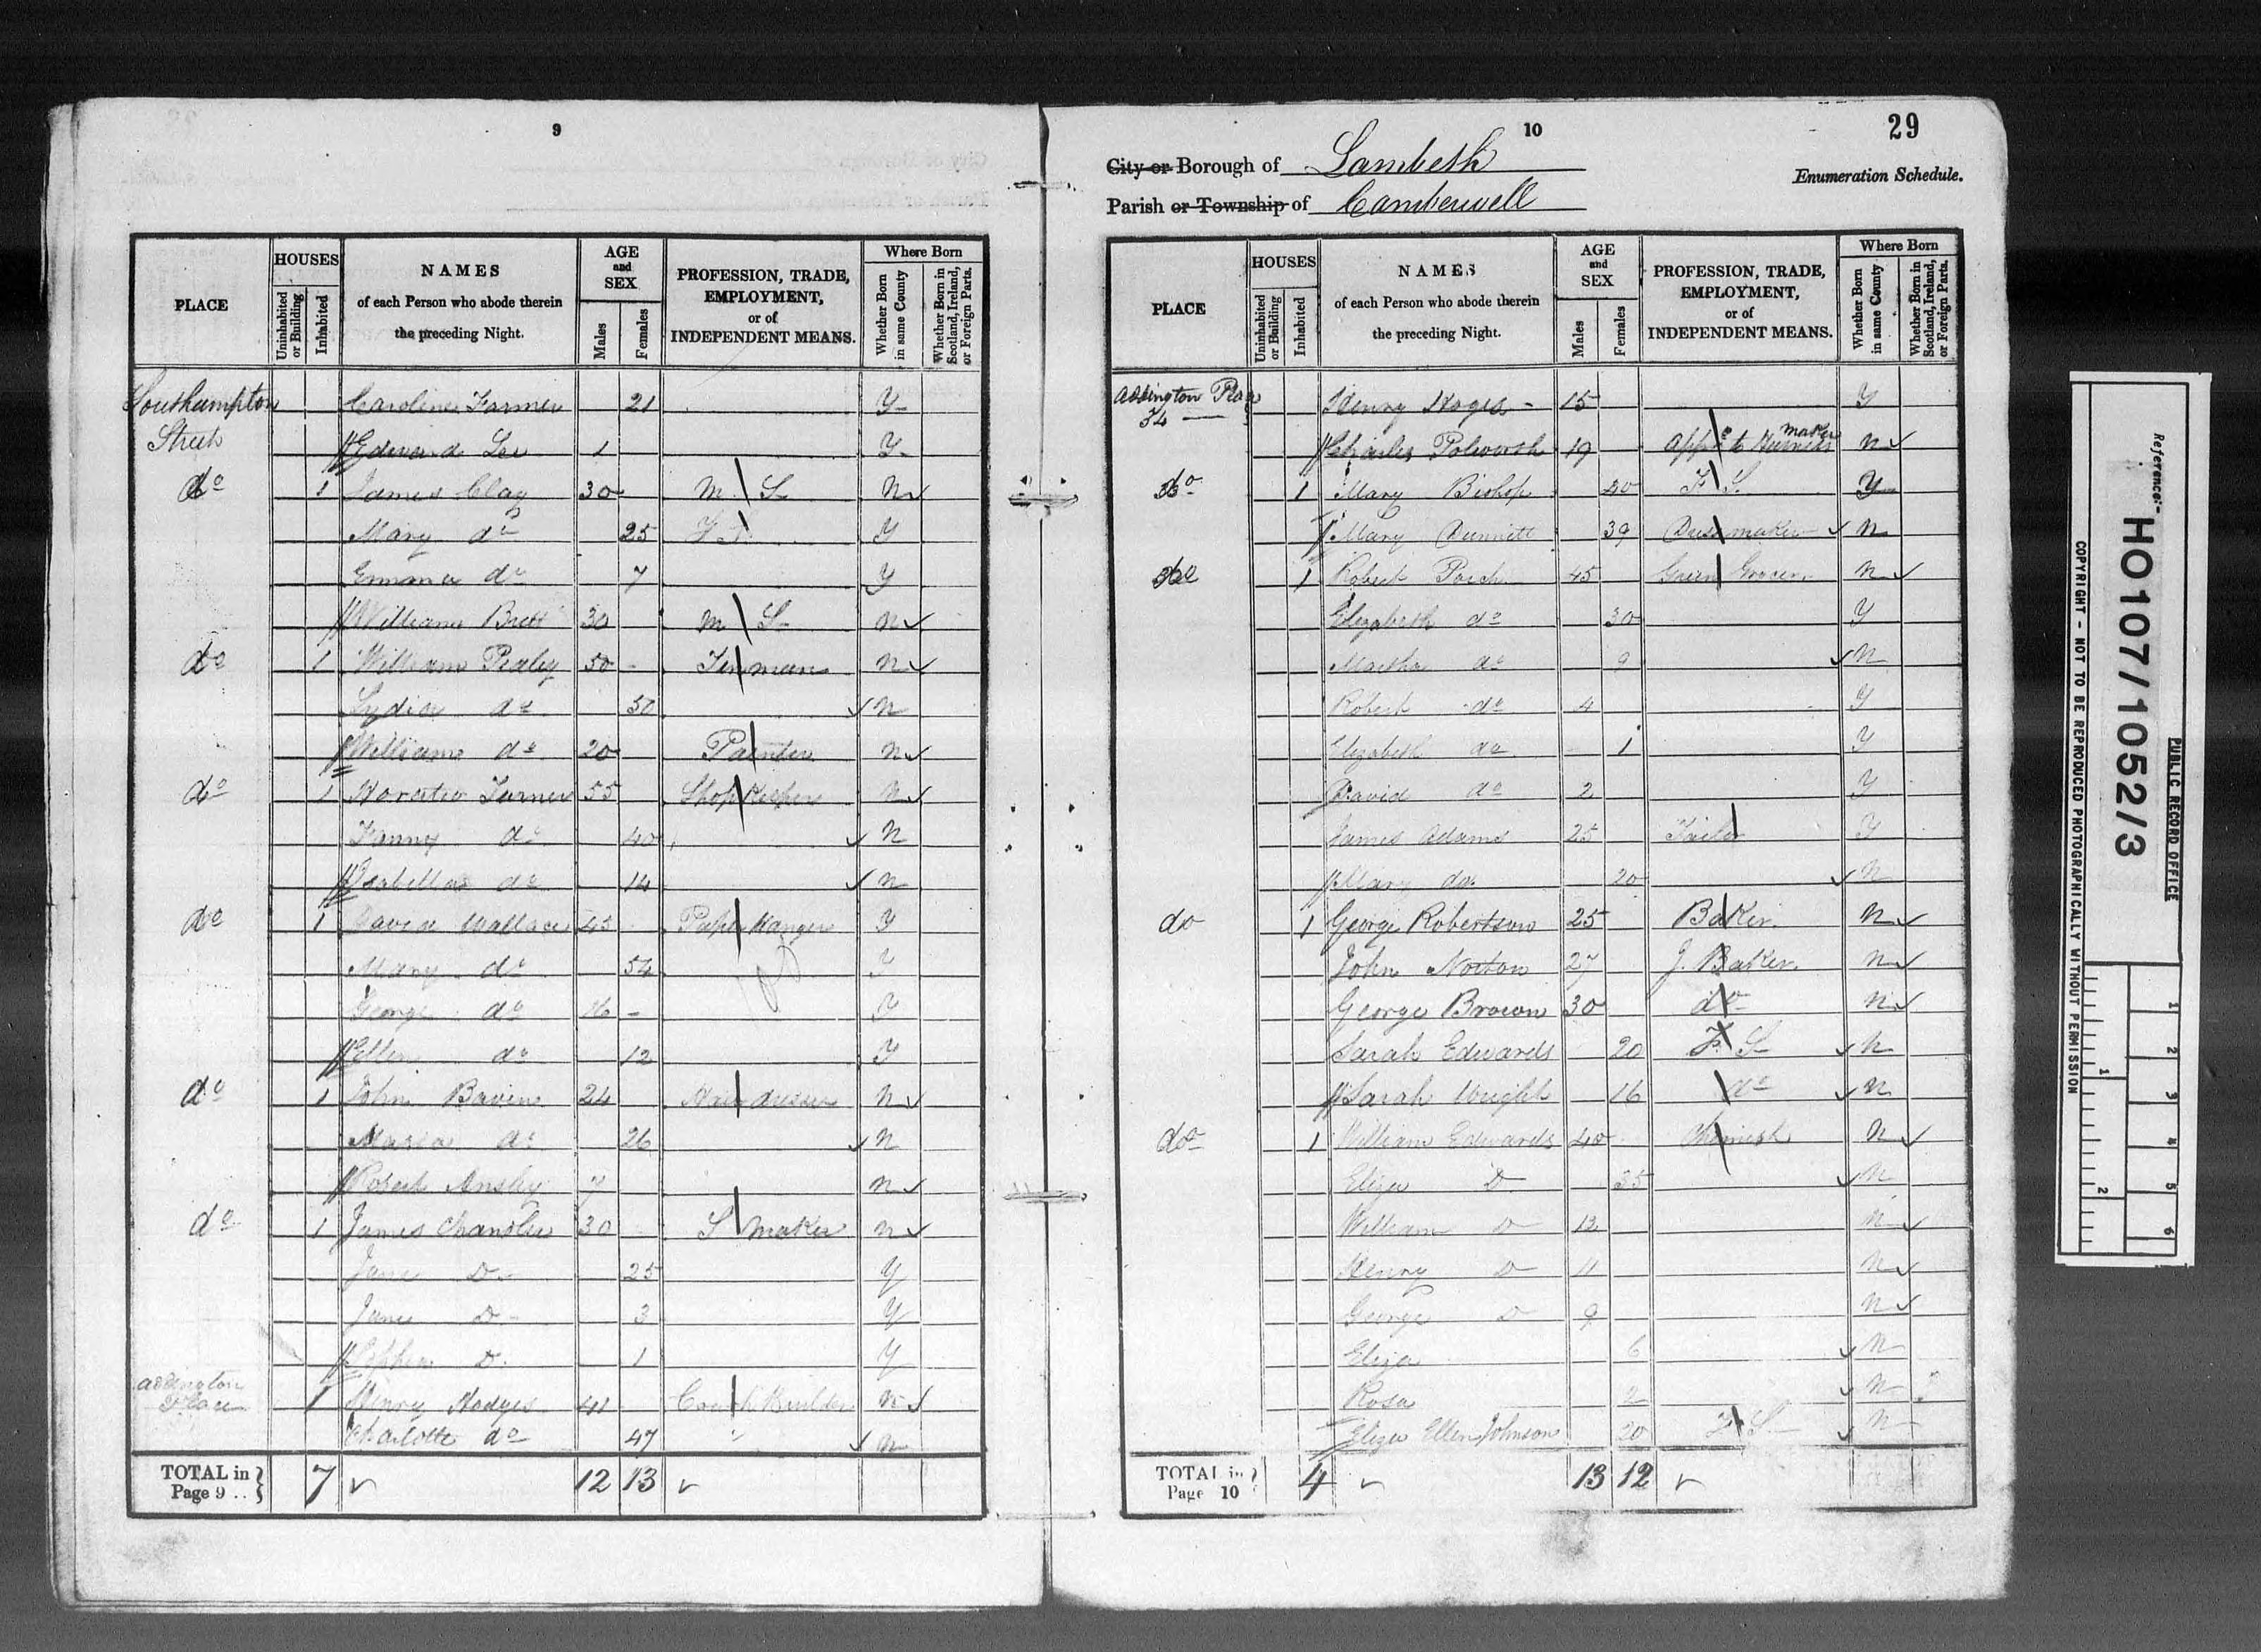 9
PLACE HOUSES Uninhabited or Building Inhabited NAMES of each Person who abode therein the preceding Night. AGE and SEX Males Females PROFESSION, TRADE, EMPLOYMENT, or of INDEPENDENT MEANS. Where Born Whether Born in same County Whether Born in Scotland, Ireland, or Foreign Parts.
Southampton Caroline Farmer 21 Y
Street Edward Lee 1 Y
do 1 James Clay 30 M S N
Mary do 25 Y
Emma do 7 Y
William Brett 30 M S N
do 1 William Pealey 50 Tinman N
Lydia do 50 N
William do 20 Painter N
do 1 Horatio Turner 55 Shop Keeper N
Fanny do 40 N
Isabella do 14 N
do 1 David Wallace 45 Paper Hanger Y
Mary do 54 Y
George do 16 Y
Ellen do 12 Y
do 1 John Baven 24 Hair dresser N
Maria do 26 N
Robert Ansley 7 N
do 1 James Chandler 30 S maker N
Jane D 25 Y
Jane D 3 Y
D 1 Y
Addington Place 1 Henry Hodges 41 Coach Builder N
Charlotte do 47 N
TOTAL in Page 9 .. 7 12 13
10
29
City or Borough of Lambeth
Enumeration Schedule.
Parish or Township of Camberwell
PLACE HOUSES Uninhabited or Building Inhabited NAMES of each Person who abode therein the preceding Night. AGE and SEX Males Females PROFESSION, TRADE, EMPLOYMENT, or of INDEPENDENT MEANS. Where Born Whether Born in same County Whether Born in Scotland, Ireland, or Foreign Parts.
Addington Place Henry Hoges 15 Y
34 Charles Polworth 19 App to Harness maker N
do 1 Mary Bishop 40 F S Y
Mary Dunnett 39 Dress maker N
do 1 Robert Poich 45 Green Grocer N
Elizabeth do 30 Y
Martha do 9 N
Robert do 4 Y
Elizabeth do 1 Y
David do 2 Y
James Adams 25 Tailor Y
Mary do 20 N
do 1 George Robertson 25 Baker N
John Norton 27 J. Baker N
George Brown 30 do N
Sarah Edwards 20 F. S N
Sarah Wright 16 do N
do 1 William Edwards 40 Chemist N
Eliza D 35 N
William D 12 N
Henry D 11 N
George D 9 N
Eliza 6 N
Rosa 2 N
Eliza Ellen Johnson 20 F S N
TOTAL in Page 10 4 13 12
PUBLIC RECORD OFFICE
Reference:-
HO107/1052/3
COPYRIGHT - NOT TO BE REPRODUCED PHOTOGRAPHICALLY WITHOUT PERMISSION
1 2 3 4 5 6
1 2